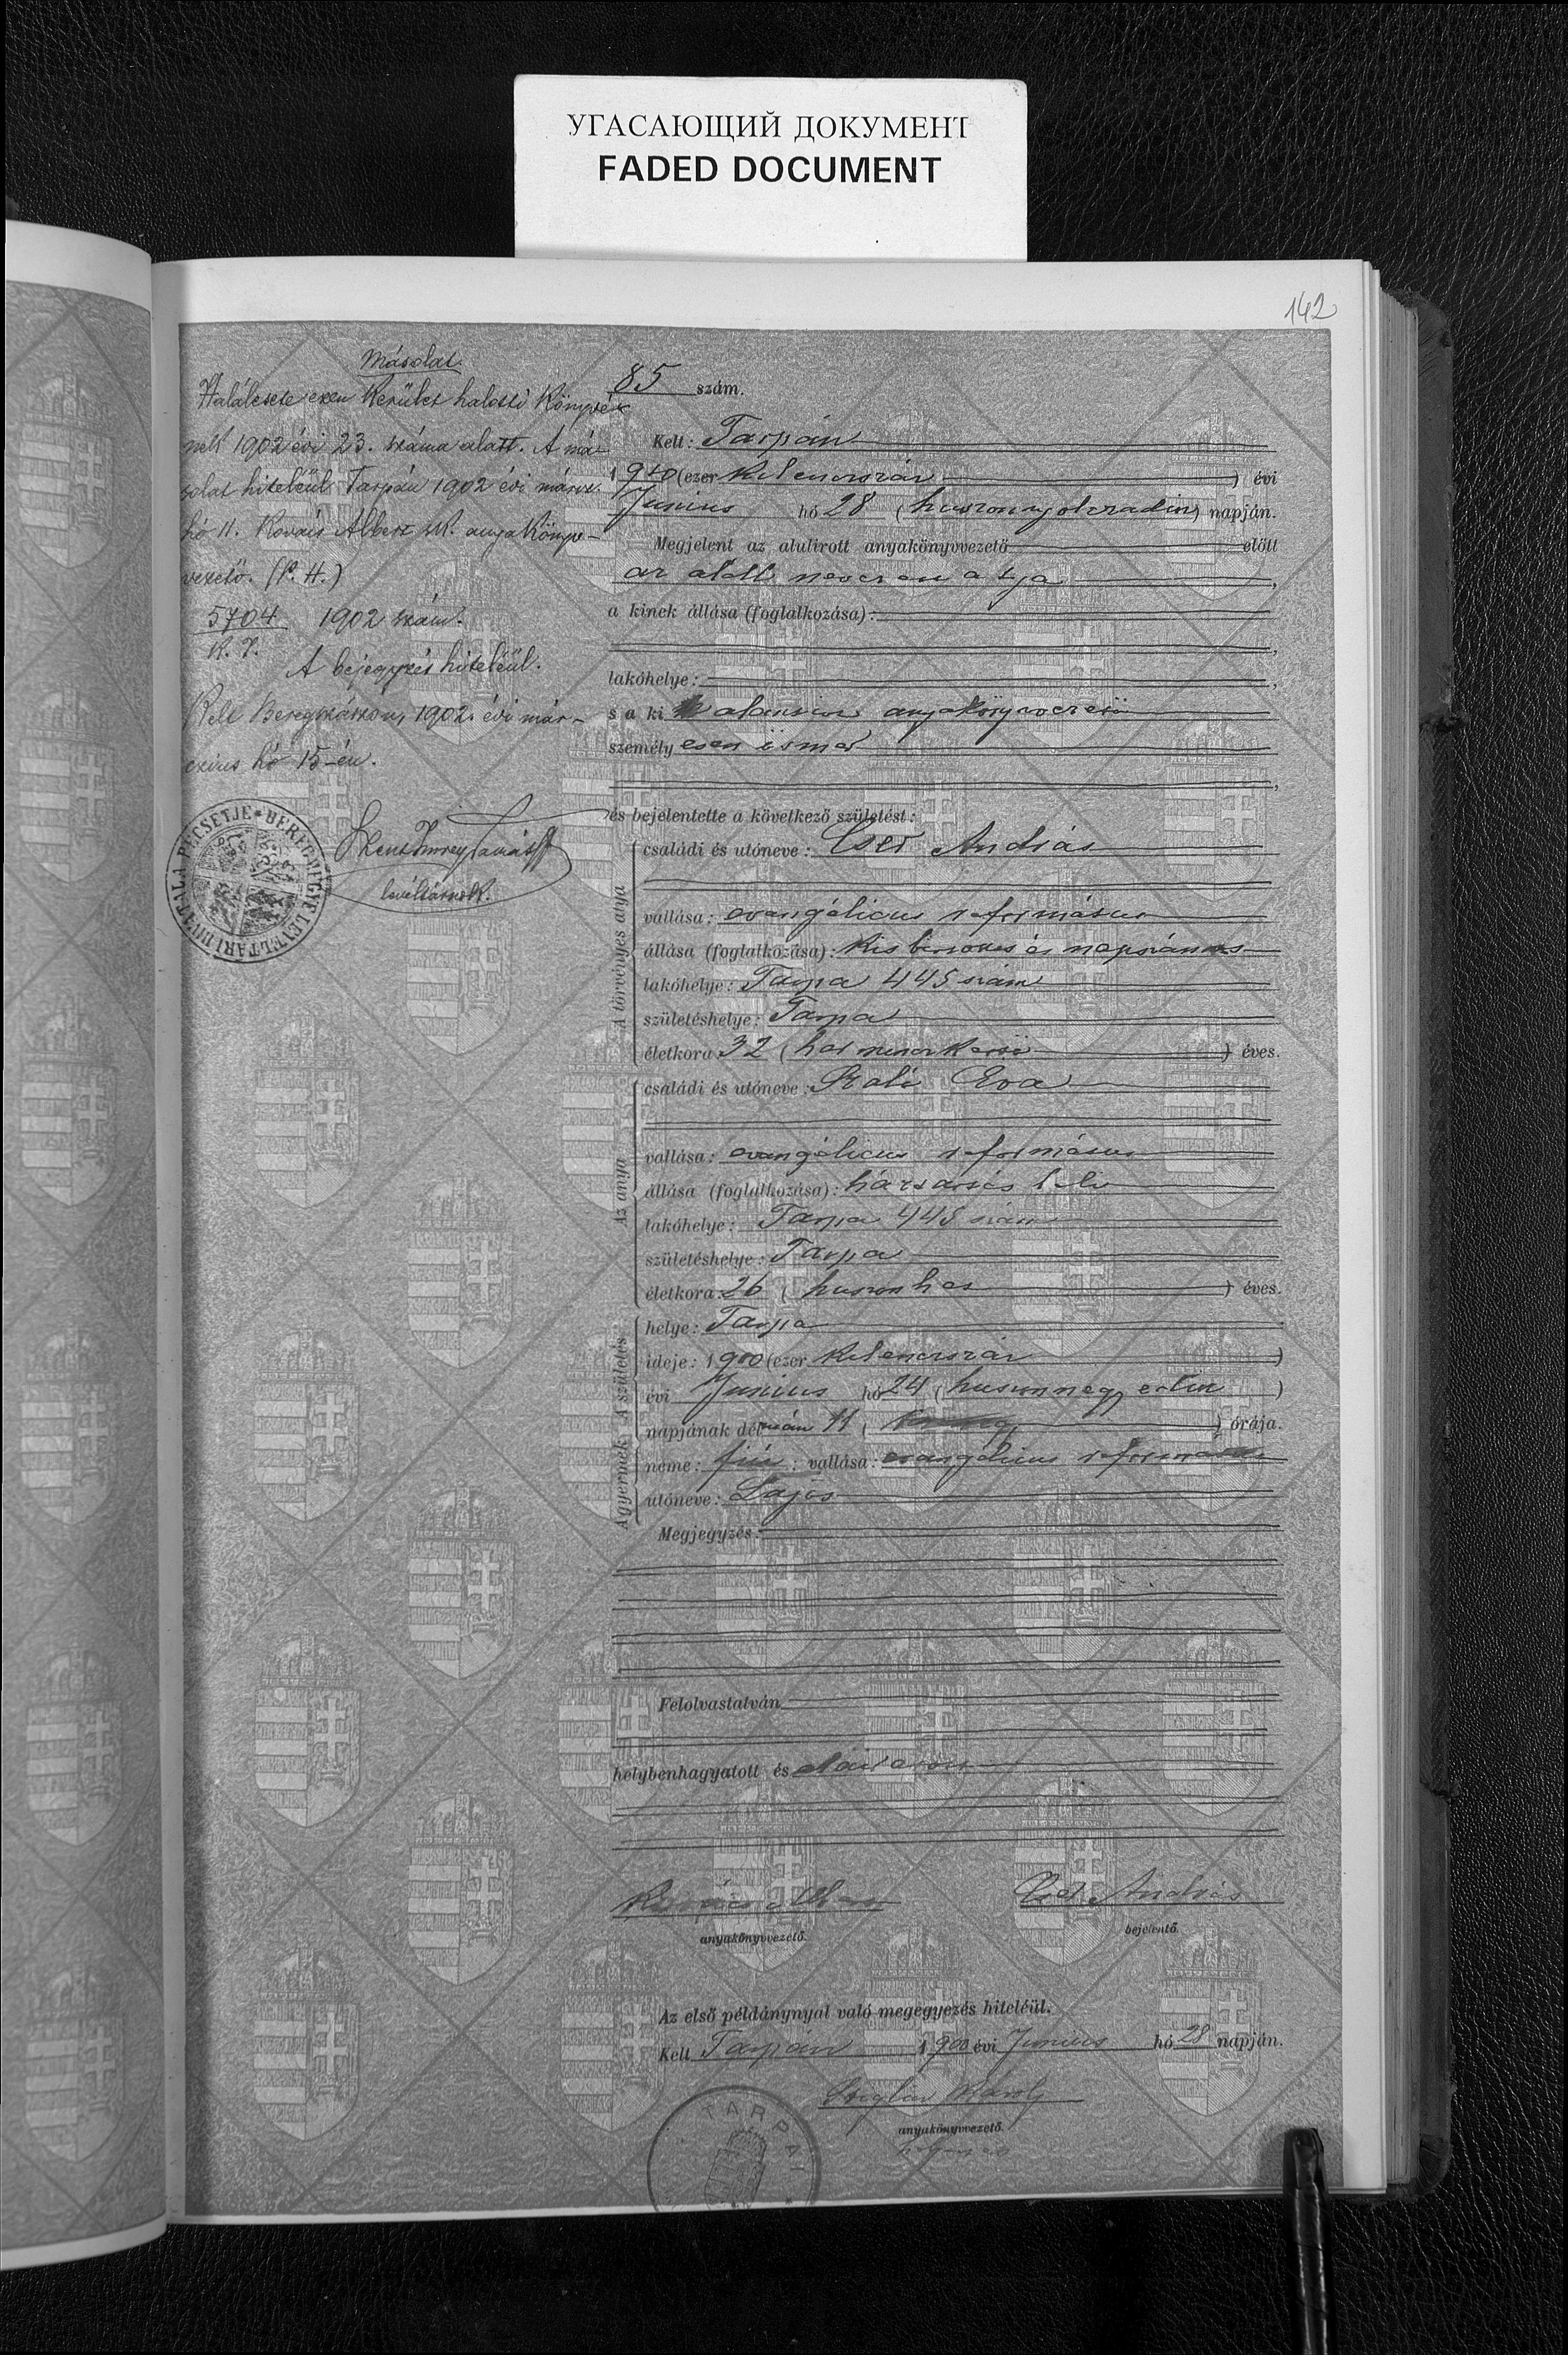 УГАСАЮЩИЙ ДОКУМЕНТ
FADED DOCUMENT
142
Másolat.
Halálesete ezen kerület halotti könyvé-
nek 1902 évi 23. száma alatt. A má-
solat hiteléül Tarpán 1902 évi márcz.
hó 11. Kovács Albert sk. anyakönyv-
vezető. (P. H.)
5704
K. I.
1902 szám.
A bejegyzés hiteléül.
Kelt Beregszászon, 1902. évi már-
czius hó 15-én.
levéltárnok.
85 szám.
Kelt: Tarpán
1900 (ezer kilenczszáz) évi
Junius hó 28 (huszonnyolczadik) napján.
Megjelent az alulirott anyakönyvvezető előtt
az alább nevezen atya,
a kinek állása (foglalkozása):
lakóhelye:
s a ki alansior anyakönyvvezető
személyesen ismer
és bejelentette a következő születést:
A törvényes atya
családi és utóneve: Cser András
vallása: evangélicus református
állása (foglalkozása): kis birtokos és napszámos
lakóhelye: Tarpa 445 szám
születéshelye: Tarpa
életkora: 32 (harminczkettő) éves.
Az anya
családi és utóneve: Eva
vallása: evangélicus református
állása (foglalkozása): háztartásbeli
lakóhelye: Tarpa 445 szám
születéshelye: Tarpa
életkora: 26 (huszonhat) éves.
A születés
helye: Tarpa
ideje: 1900 (ezer kilenczszáz)
évi Junius hó 24 (huszonnegyedik)
napjának délután 11 ( ) órája.
A gyermek
neme: fiú; vallása: evangélicus református
utóneve: Lajos
Megjegyzés:
Felolvastatván
helybenhagyatott és aláiratott
Kovács Albert
anyakönyvvezető.
Cser András
bejelentő.
Az első példánynyal való megegyezés hiteléül.
Kelt Tarpán 1900 évi Junius hó 28 napján.
Károly
anyakönyvvezető.
TARPAI